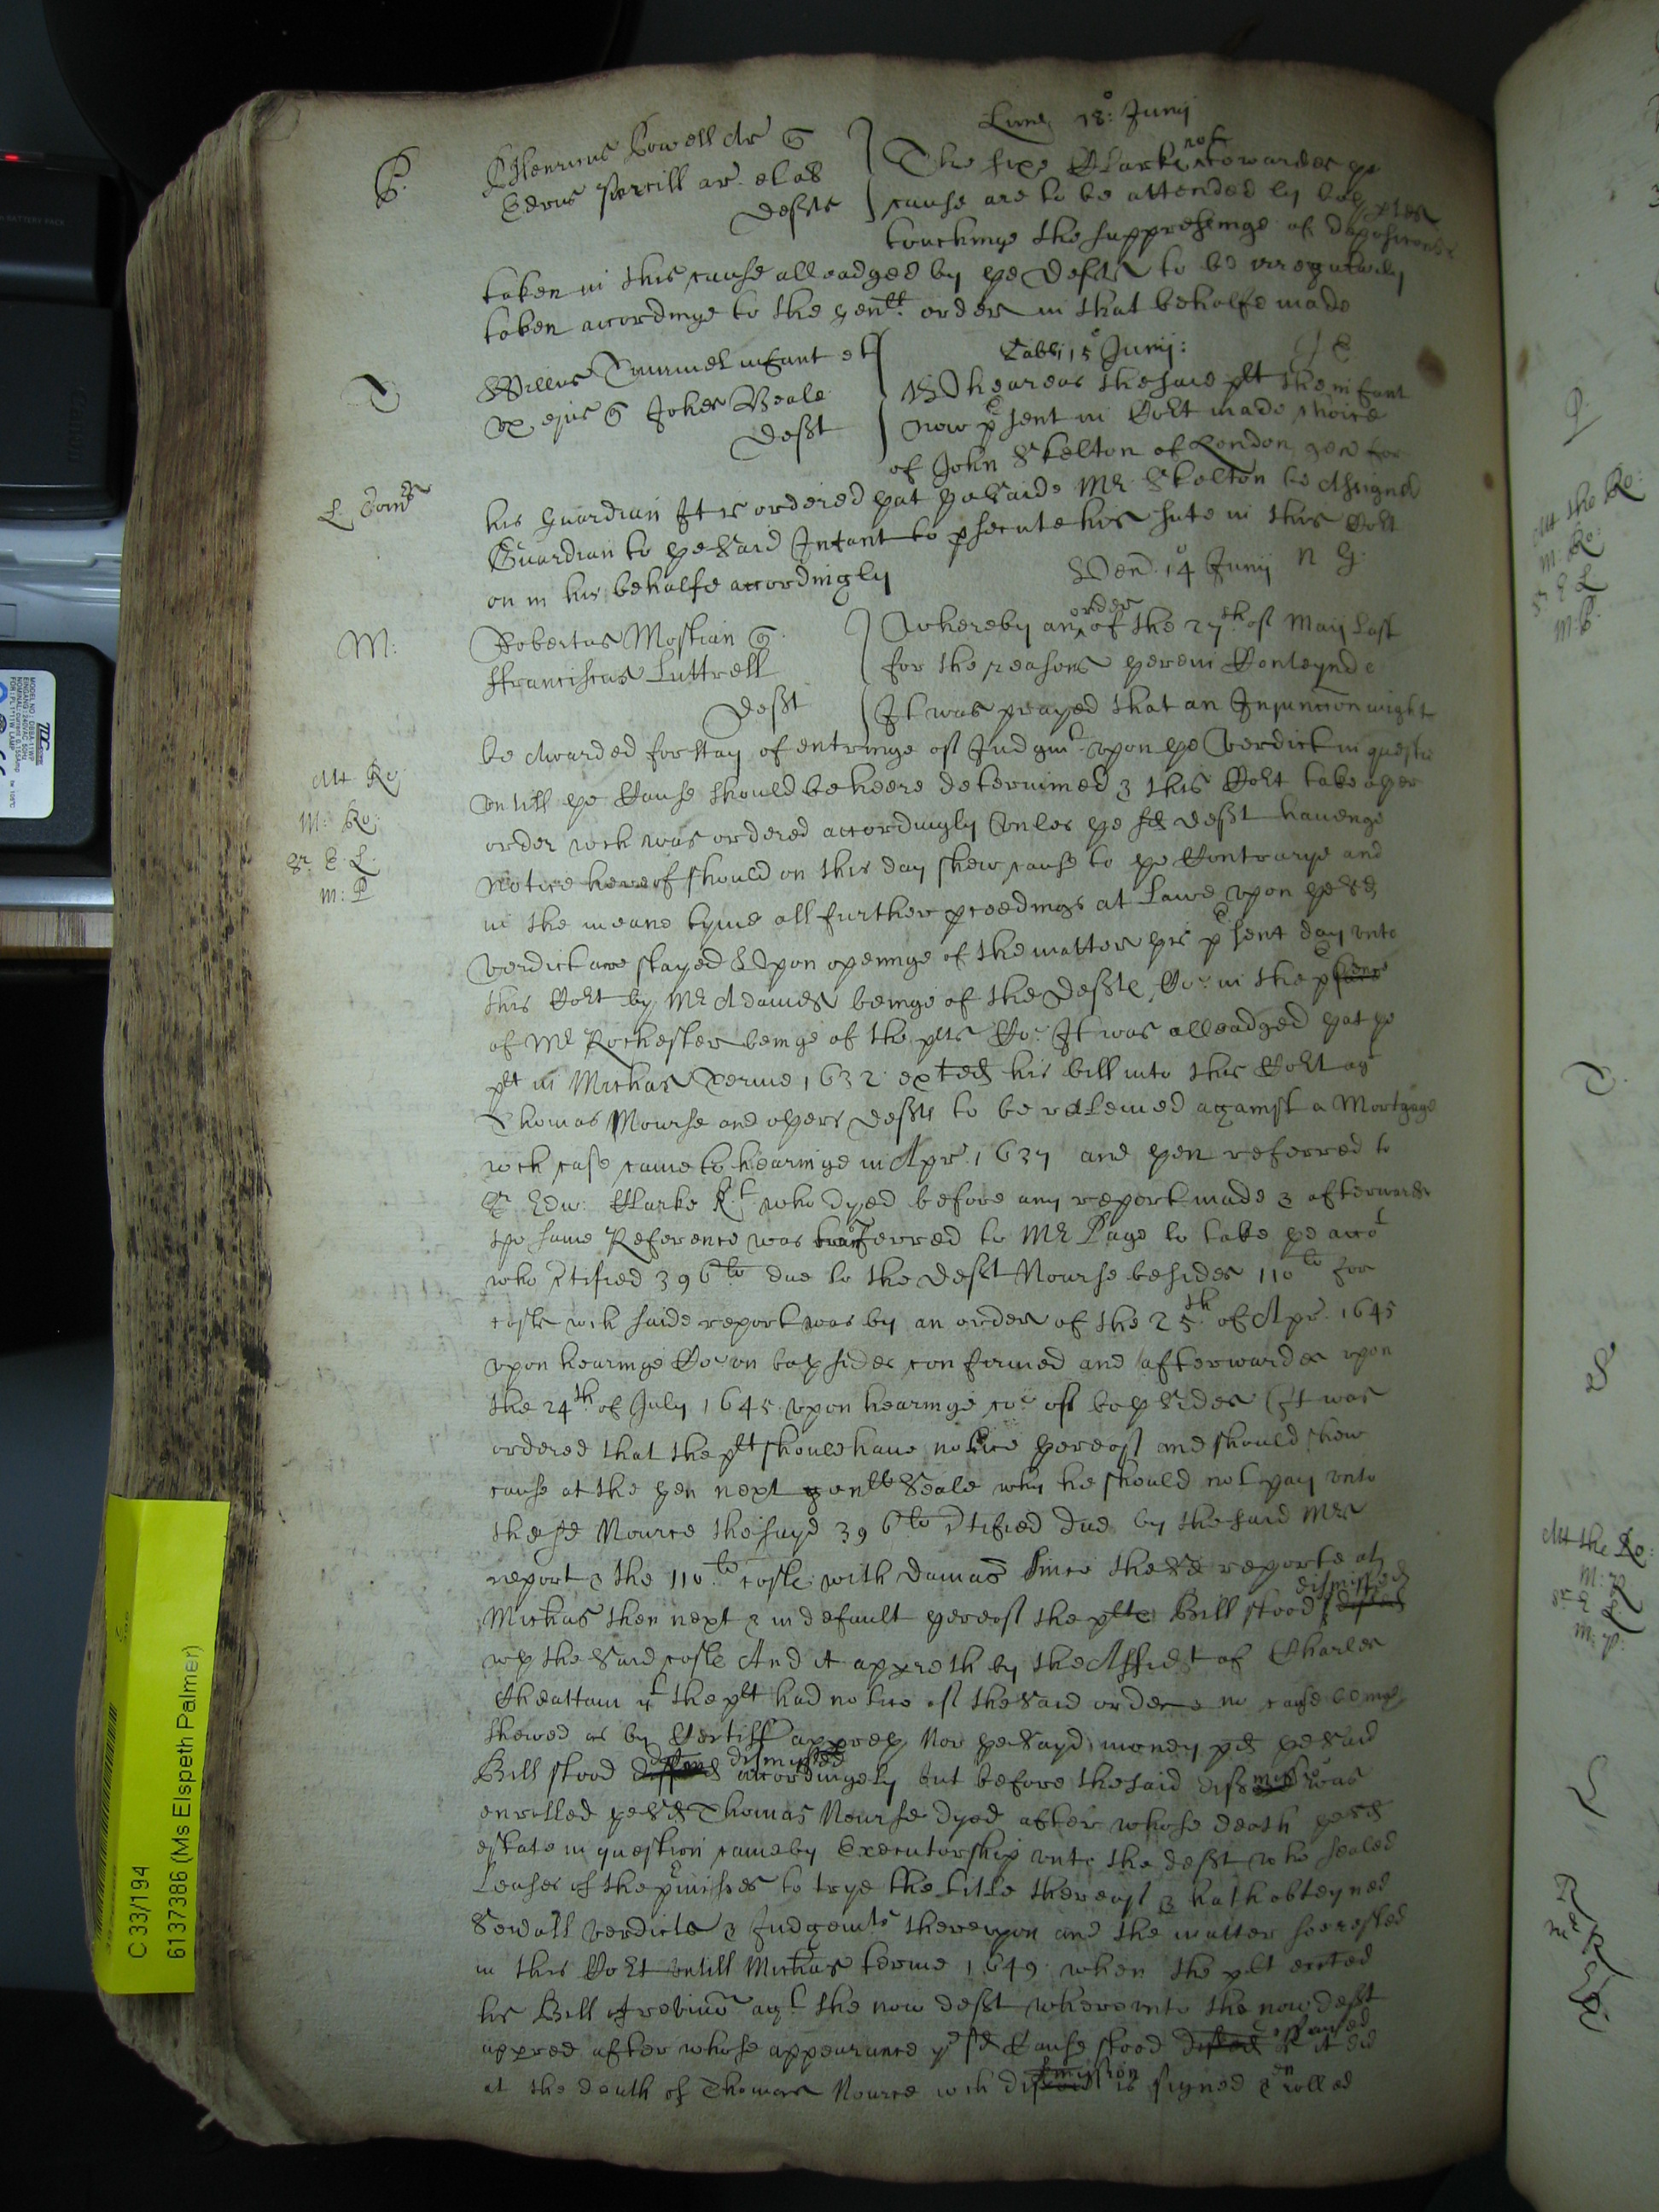 Lune 18: Junij
P. Henricus Powell Ar q
Edrus ar. et al
Defts
The sixe Clarkes not towardes ye
cause are to be attended by both ptes
touchinge the suppressinge of deposicons
taken in this cause alleadged by ye Defts to be irregularly
taken accordinge to the genll. order in that behalfe made
Sabbi 15 Junij:
T Willus infant et
ux ejus q Johes Veale
Deft
Whereas the said plt the infant
now p'sent in Cort made choice
of John Skelton of London gen for
his guardian It is ordered yat ye saide Mr Skelton be Assigned
Guardian to ye said Infant to p'secute his sute in this Cort
on in his behalfe accordingly
Ven. 14 Junij
M:
Robertus Mostian q
ffranciscus Luttrell
Deft
Whereby an order of the 27th of Maij last
for the reasons yerein Conteynde
It was prayed that an Injunccon might
be Awarded for stay of entringe of Judgmt upon ye Verdict in questio
untill ye Cause should be heere determined & this Cort take oyer
order wch was ordered accordingly Unles ye sd Deft havenge
notice hereof should on this day shew cause to ye Contrarye and
in the meane tyme all further proceedings at Lawe upon ye sd
Verdict are stayed & Upon openinge of the matter yis p'sent day unto
this Cort by Mr Adames beinge of the Defts Co: in the p'sence
of Mr Rochester beinge of the plts Co: It was alleadged yat ye
plt in Michas Terme 1632 exted his bill into this Cort agt
Thomas Nourse and oyers Defts to be releived against a Mortgage
wch case came to hearinge in Apr. 1637 and yen referred to
Sr Edw: Clarke Kt who dyed before any report made & afterwards
the same Reference was transferred to Mr Page to take ye accot
who certified 396li due to the Deft Nourse besides 110li for
costs wch saide report was by an order of the 25th of Apr. 1645
upon hearinge Co: on both sides confirmed and afterwardes upon
the 24th of July 1645 upon hearinge co: of both sides It was
ordered that the plt should have notice yereof and should shew
cause at the yen next genll Seale why he should not pay unto
the sd Nource the sayd 396li certified due by the said Mrs
report & the 110li costs with damas since the sd reporte at
Michas then next & in default yereof the plts Bill stood dismissed
wth the said costs And it appreth by the Affidt of Charles
Cheattam yt the plt had notice of the said order & no cause beinge
shewed as by Certiff appreth Nor ye sayd money pd ye said
Bill stood dismissed accordingely but before the said dismission was
enrolled ye sd Thomas Nourse dyed after whose death ye sd
estate in question came by Executorship unto the deft who sealed
Leases of the p'misses to trye the title thereof & hath obteyned
Severall verdicts & Judgemts thereupon and the matter soe rested
in this Cort untill Michas terme 1649 when the plt exted
his Bill of revivor agt the now deft whereunto the now deft
appred after whose appearance ye sd Cause stood as it did
at the death of Thomas Nource wch dismission is signed & enrolled
L Comrs
Att Ro
M: Ro:
Sr E. L.
m: P
Att the Ro:
M: Ro:
Sr E L
M: P.
Att the Ro:
M: R
Sr E L
M: P:
C 33/194
6137386 (Ms Elspeth Palmer)